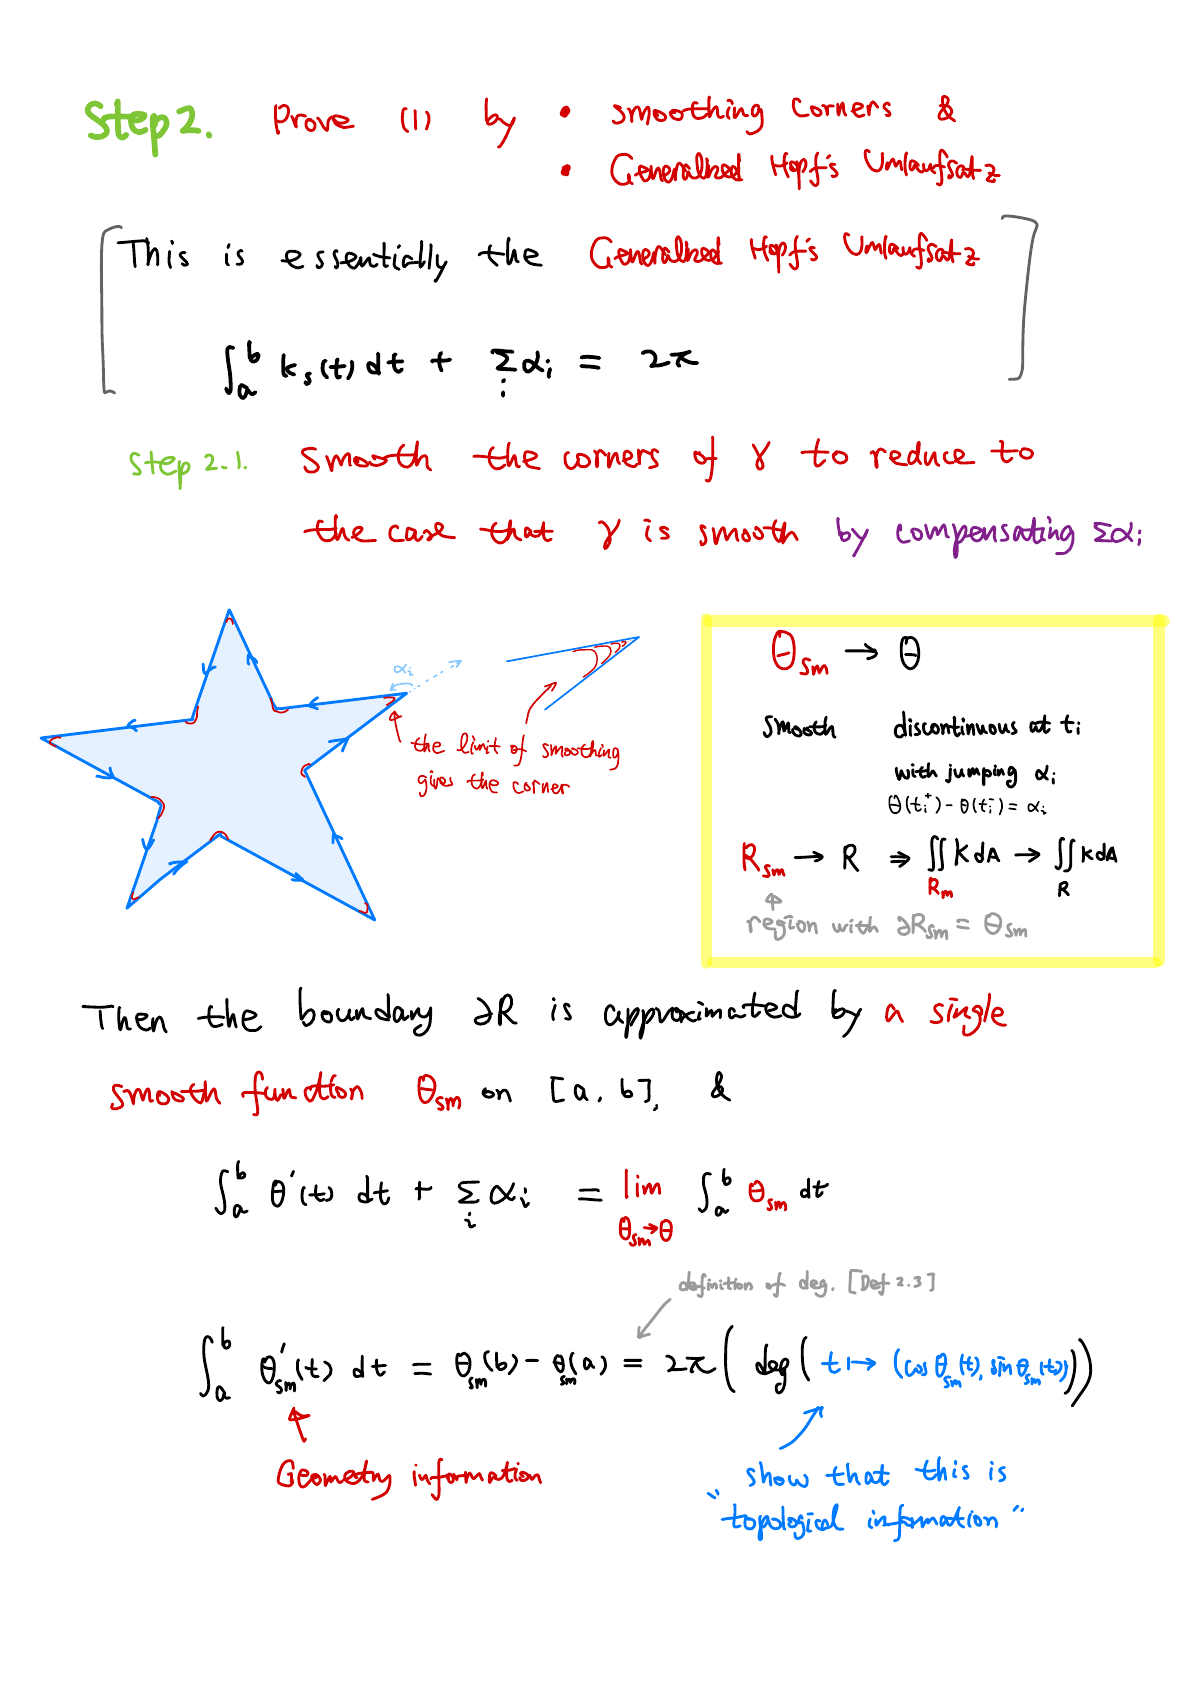 Step 2. Prove (1) by • smoothing corners &
• Generalized Hopf's Umlaufsatz
This is essentially the Generalized Hopf's Umlaufsatz
∫_a^b k_s(t) dt + Σ_i α_i = 2π
Step 2-1. Smooth the corners of γ to reduce to
the case that γ is smooth by compensating Σα_i
α_i
the limit of smoothing
gives the corner
θ_sm → θ
smooth discontinuous at t_i
with jumping α_i
θ(t_i^+) - θ(t_i^-) = α_i
R_sm → R ⇒ ∬_{R_m} K dA → ∬_R K dA
region with ∂R_sm = θ_sm
Then the boundary ∂R is approximated by a single
smooth function θ_sm on [a, b], &
∫_a^b θ'(t) dt + Σ_i α_i = lim_{θ_sm→θ} ∫_a^b θ_sm dt
definition of deg. [Def 2.3]
∫_a^b θ'_sm(t) dt = θ_sm(b) - θ_sm(a) = 2π(deg(t ↦ (cos θ_sm(t), sin θ_sm(t))))
Geometry information
show that this is
"topological information"